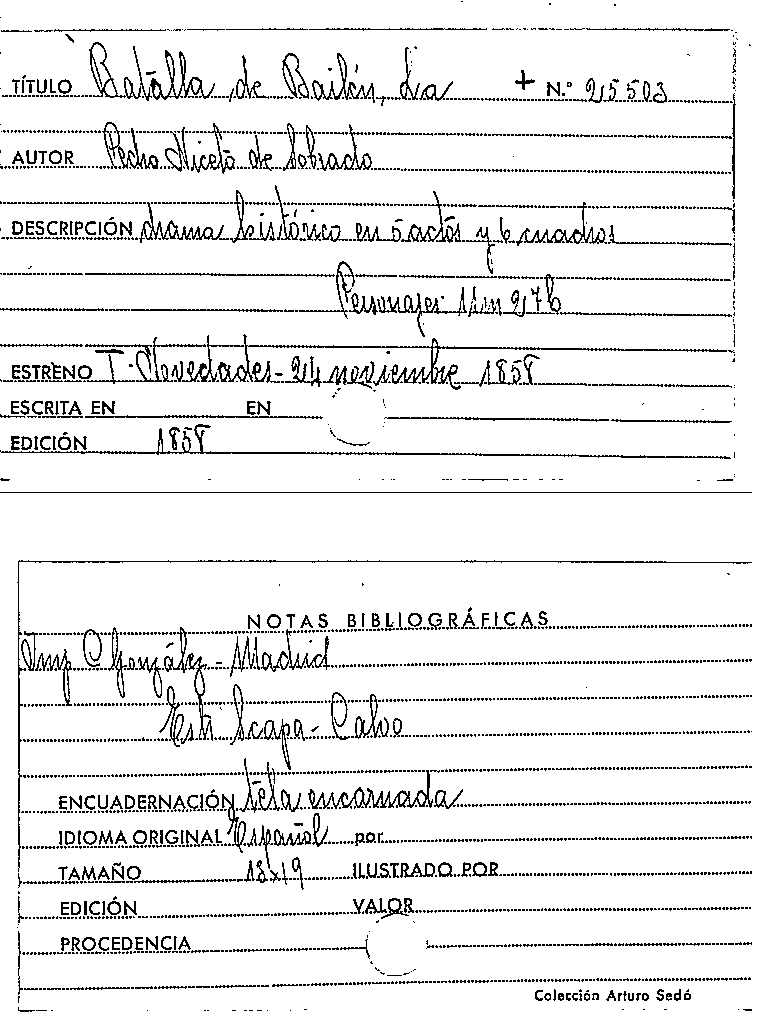 TÍTULO Batalla de Bailén, La + N.º 25503
AUTOR Pedro Niceto de Sobrado
DESCRIPCIÓN drama histórico en 5 actos y 6 cuadros
Personajes 11m 2
ESTRENO T. Novedades - 24 noviembre 1858
ESCRITA EN EN
EDICIÓN 1858
NOTAS BIBLIOGRÁFICAS
Imp C González - Madrid
Calvo
ENCUADERNACIÓN tela encarnada
IDIOMA ORIGINAL Español por
TAMAÑO 13x19 ILUSTRADO POR
EDICIÓN VALOR
PROCEDENCIA
Colección Arturo Sedó